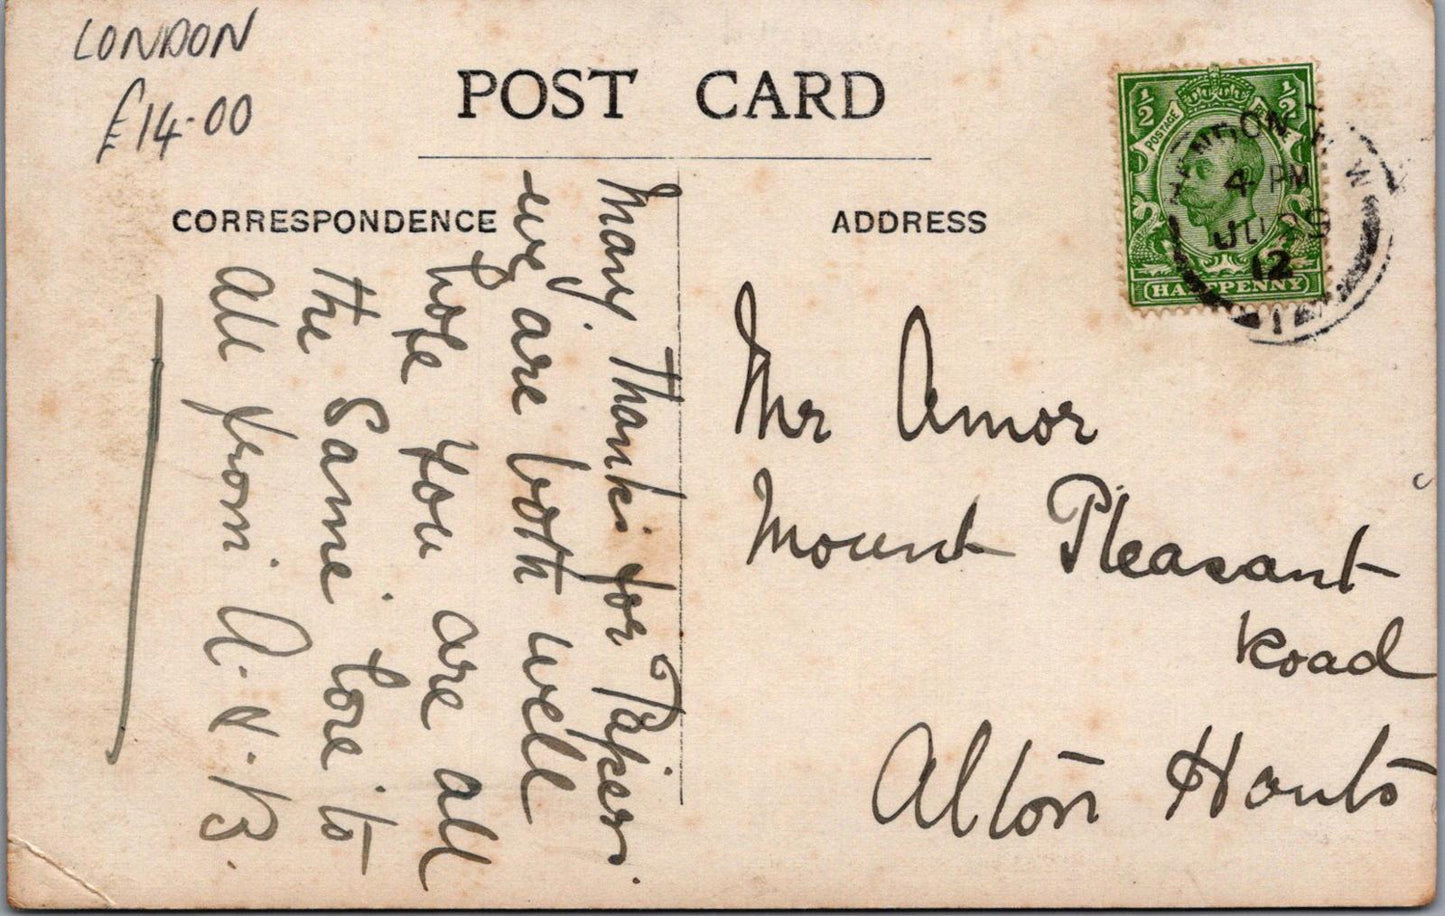 LONDON
£14-00
POST CARD
CORRESPONDENCE
ADDRESS
1/2 1/2
POSTAGE
HALFPENNY
4 PM
12
Many Thanks for Papers.
we are both well
hope you are all
the Same Love to
all from A.N.B.
Mr Amor
Mount Pleasant
Road
Alton Hants